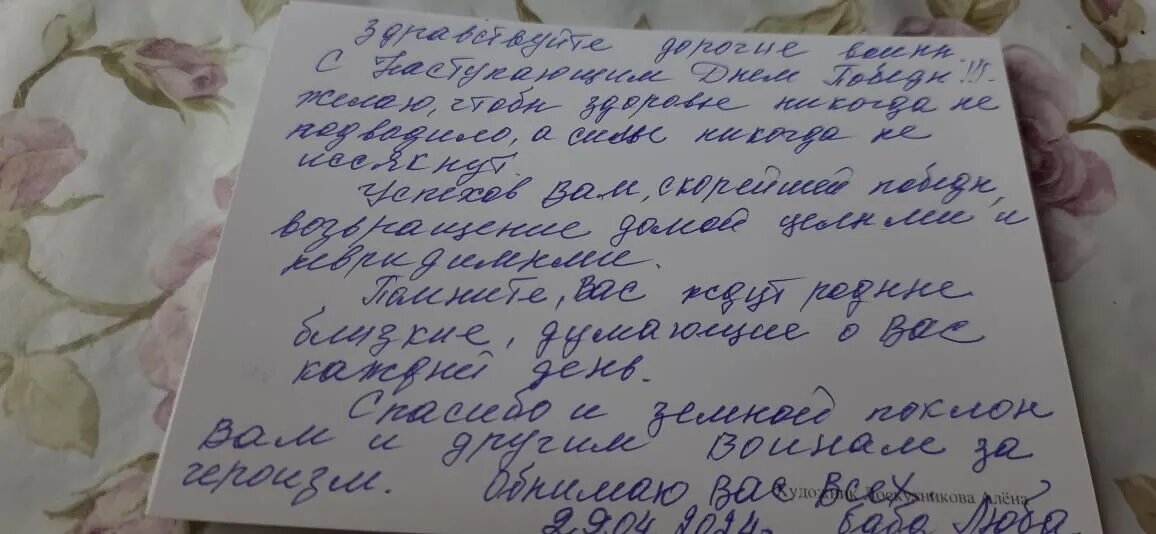 Здравствуйте дорогие воины.
С Наступающим Днем Победы!!!
желаю, чтобы здоровье никогда не
подводило, а силы никогда не
иссякнут.
Успехов Вам, скорейшей победы,
возвращение домой целыми и
невридимыми.
Помните, Вас ждут родные
близкие, думающие о Вас
каждый день.
Спасибо и земной поклон
Вам и другим Воинам за
героизм. Обнимаю Вас Всех.
Художник Алёна
29.04 2024г. баба Люба.